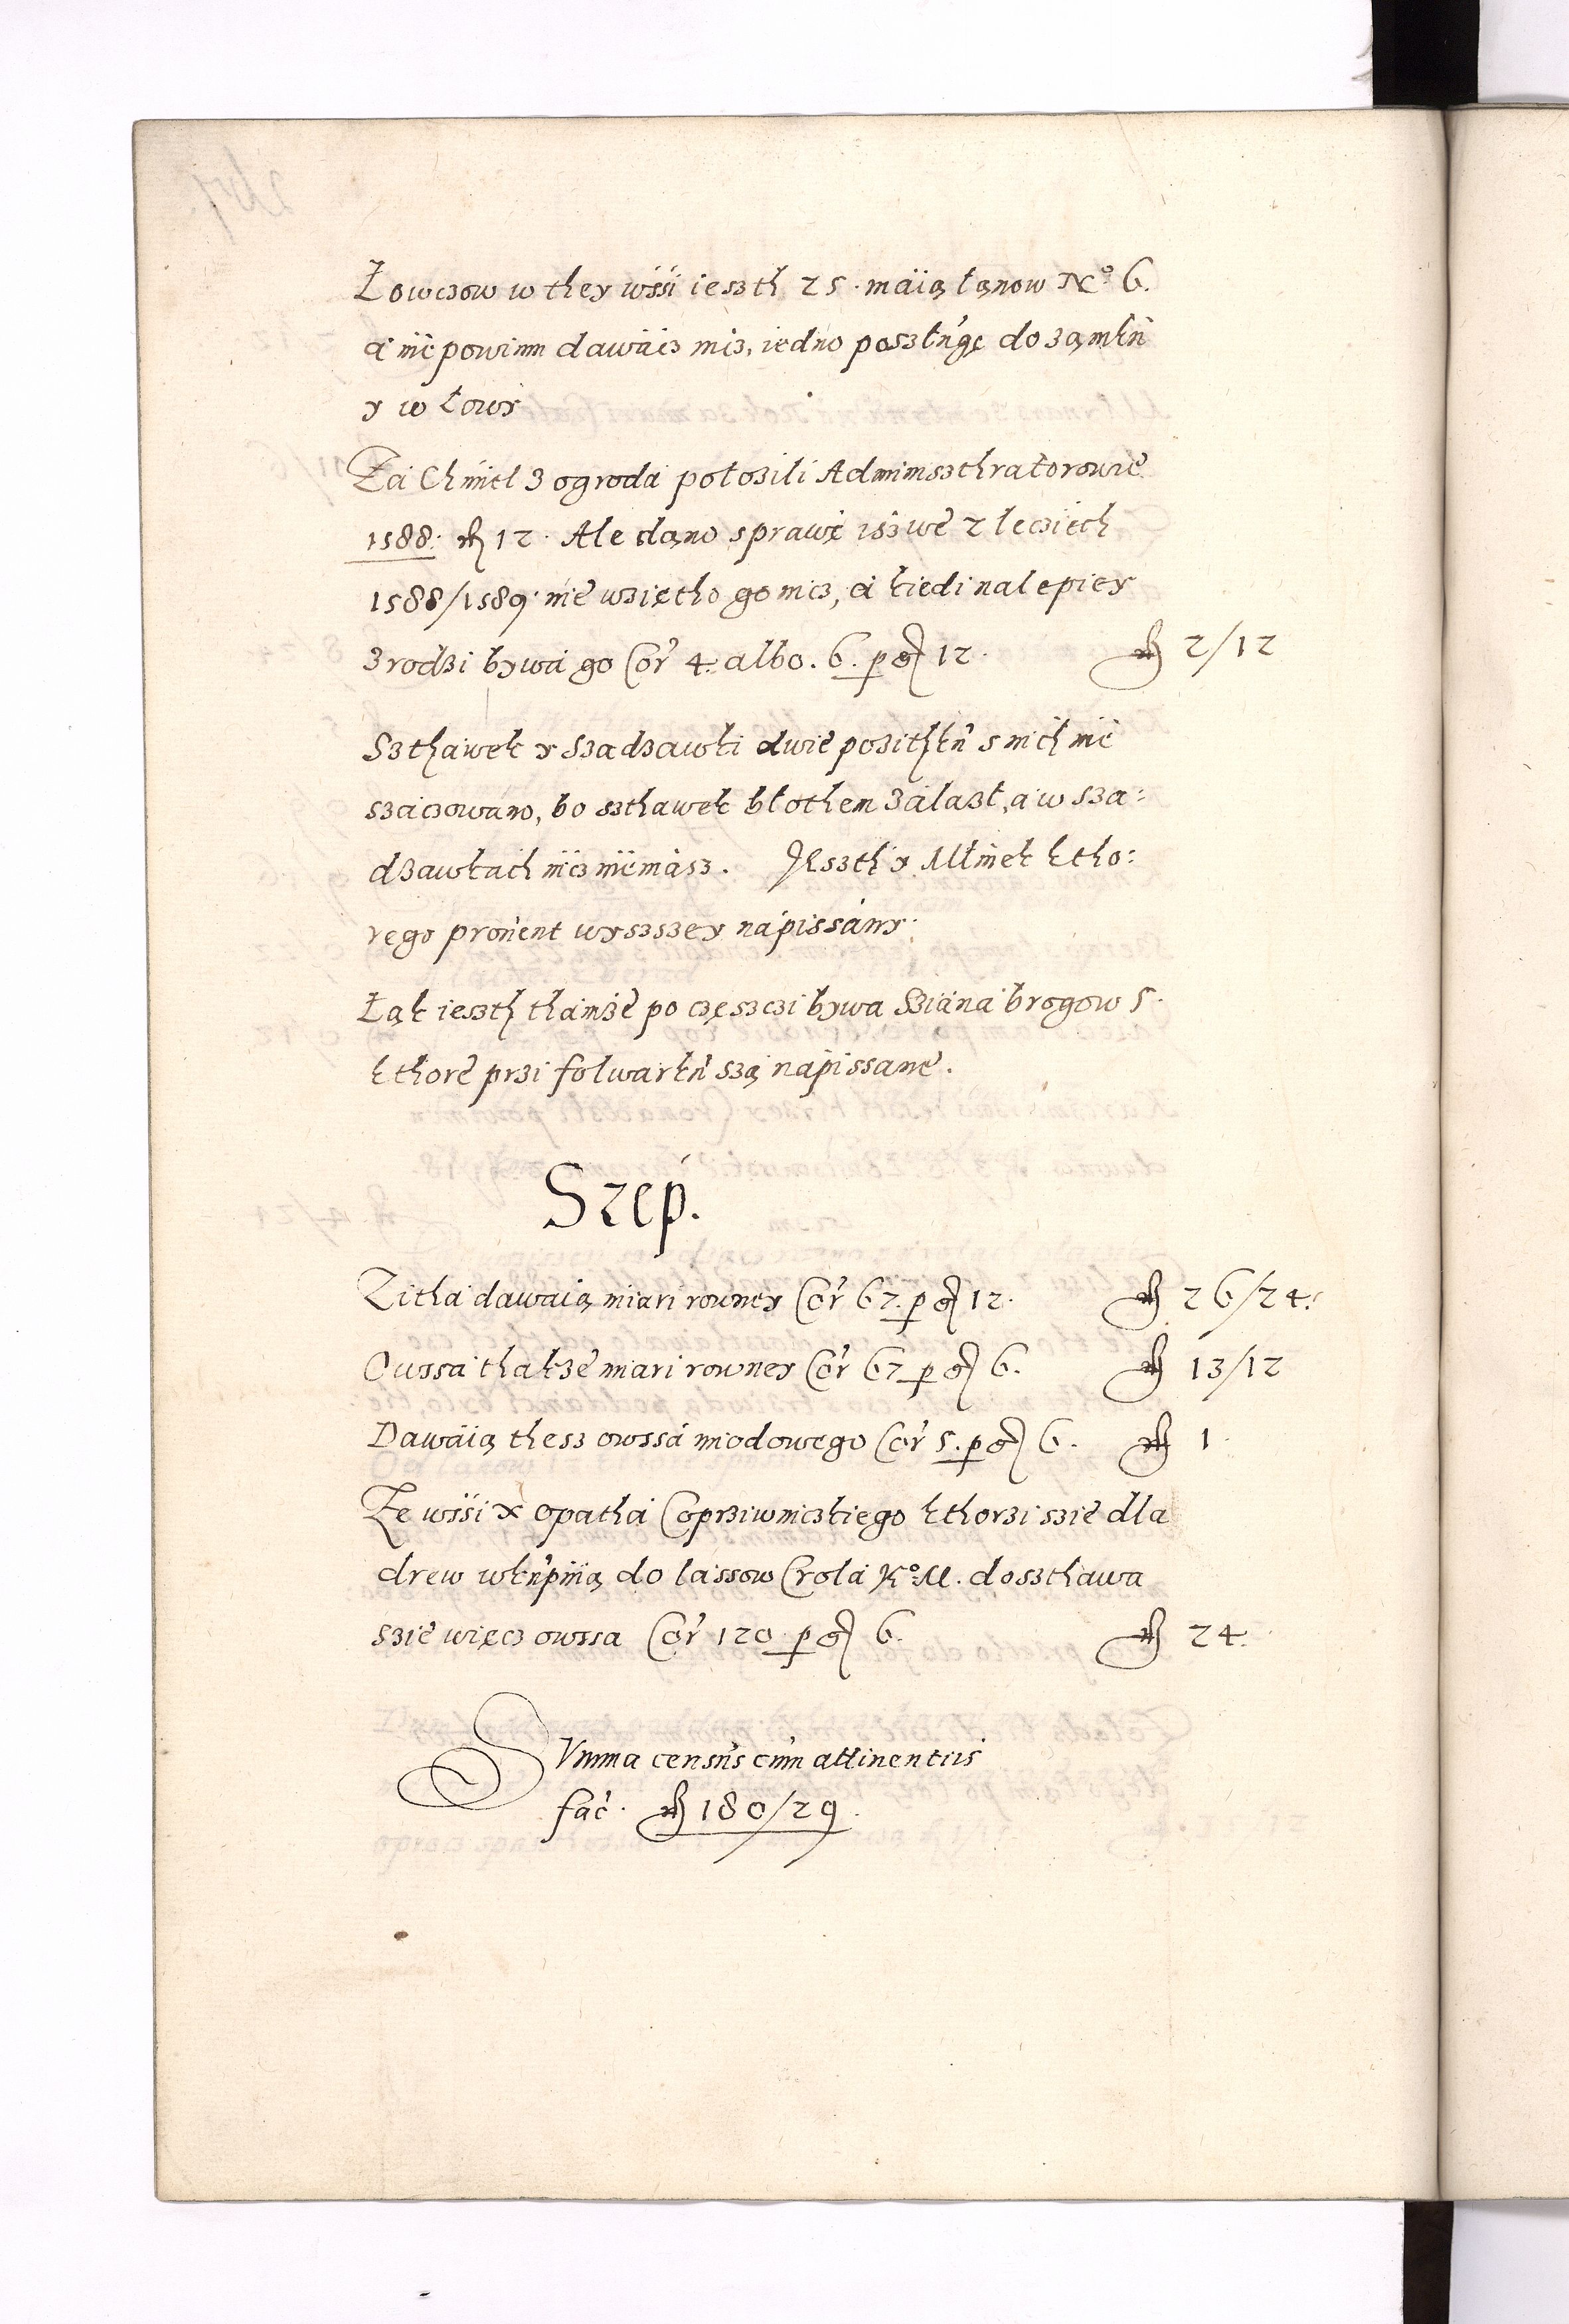 Łowczow w they wssi ieszth 25. maią łąnow No 6.
a nie powinni dawacz nicz, iedno posztugę do ząmku
y w łowy
Za Chmiel z ogroda połozili Adminiszthratorowie
1588. fl 12. Ale dano sprawę isz we 2 leciech
1588/1589. nie wzięctho go nicz, a kiedi nalepiey
zrodzi bywa go Cor 4. albo. 6. p gr 12. fl 2/12
Szthawek y Szadzawki dwie pozithku s nich nie
szaczowano, bo szthawek błothem zalazł, a w sza:
dzawkach nicz niemasz. Ieszth y Młinek ktho:
rego prouent wyszszey napissany.
Łąk ieszth thamże po częszczi bywa Sziana brogow 5.
kthore przi folwarku szą napissane.
Szep.
Zitha dawaią miari rowney Cor 67. p gr 12. fl 26/24.
Owssa thakze miari rowney Cor 67 p gr 6. fl 13/12
Dawaią thesz owssa miodowego Cor 5. p gr 6. fl 1.
Ze wssi x opatha Coprziwniczkiego kthorzi szie dla
drew wkupiią do lassow Crola Ko M. doszthawa
szie więcz owssa Cor 120 p gr 6. fl 24.
SVmma census cum attinentiis
fac. fl 180/29.